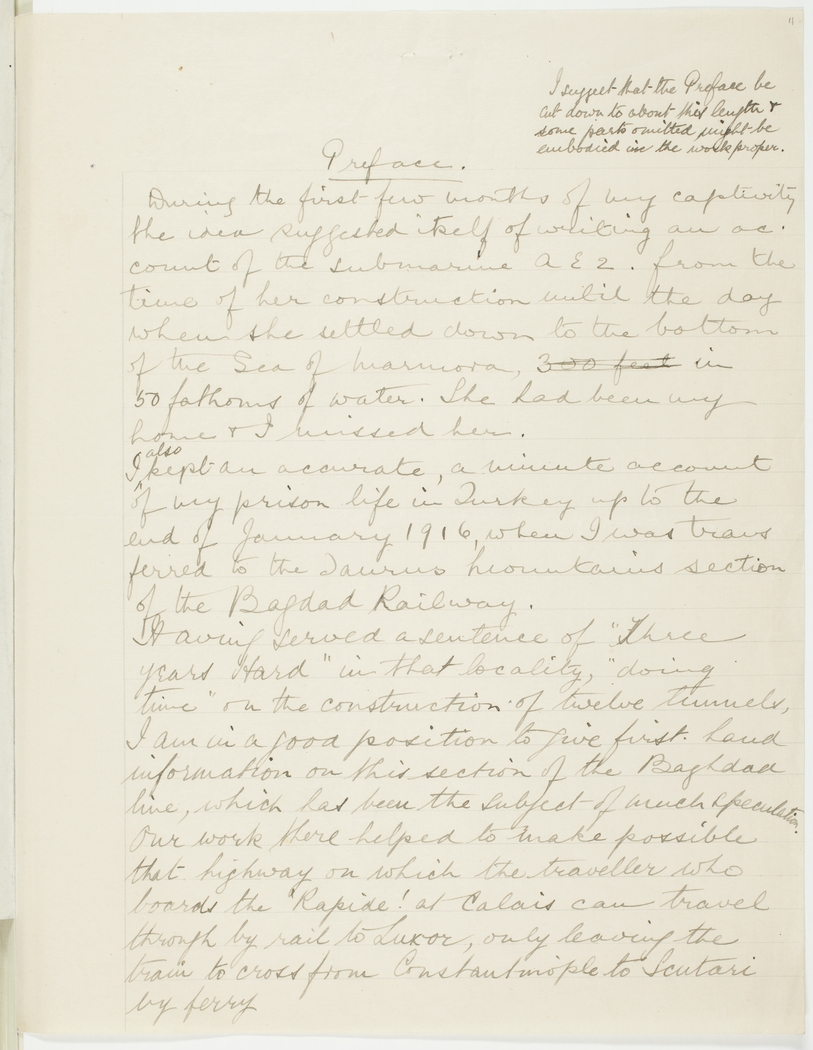 11
I suggest that the Preface be
cut down to about this length &
some parts omitted might be
embodied in the work proper.
Preface.
During the first few months of my captivity
the idea suggested itself of writing an ac-
count of the submarine AE2. from the
time of her construction until the day
when she settled down to the bottom
of the Sea of Marmora, 300 feet in
50 fathoms of water. She had been my
home & I missed her.
I also kept an accurate, a minute account
of my prison life in Turkey up to the
end of January 1916, when I was trans
ferred to the Taurus Mountains section
of the Bagdad Railway.
Having served a sentence of "Three
years Hard" in that locality, "doing
time" on the construction of twelve tunnels,
I am in a good position to give first hand
information on this section of the Baghdad
line, which has been the subject of much speculation.
Our work there helped to make possible
that highway on which the traveller who
boards the 'Rapide' at Calais can travel
through by rail to Luxor, only leaving the
train to cross from Constantinople to Scutari
by ferry